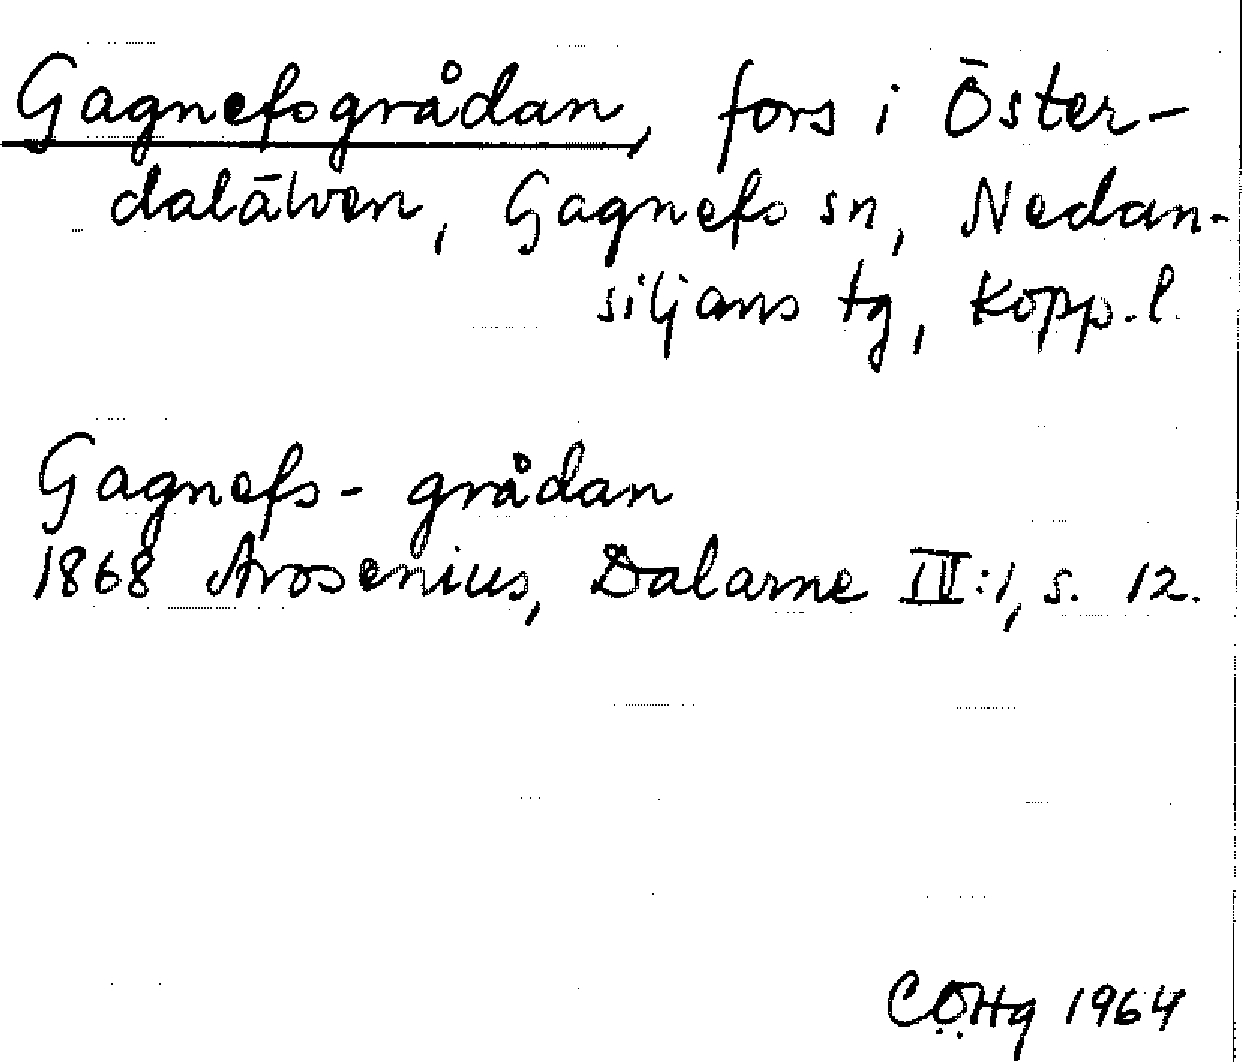 Gagnefsgrådan, fors i Öster-
dalälven, Gagnefs sn, Nedan-
siljans tg, Kopp.l.
Gagnefs-grådan
1868 Arosenius, Dalarne IV:1, s. 12.
CÖHg 1964